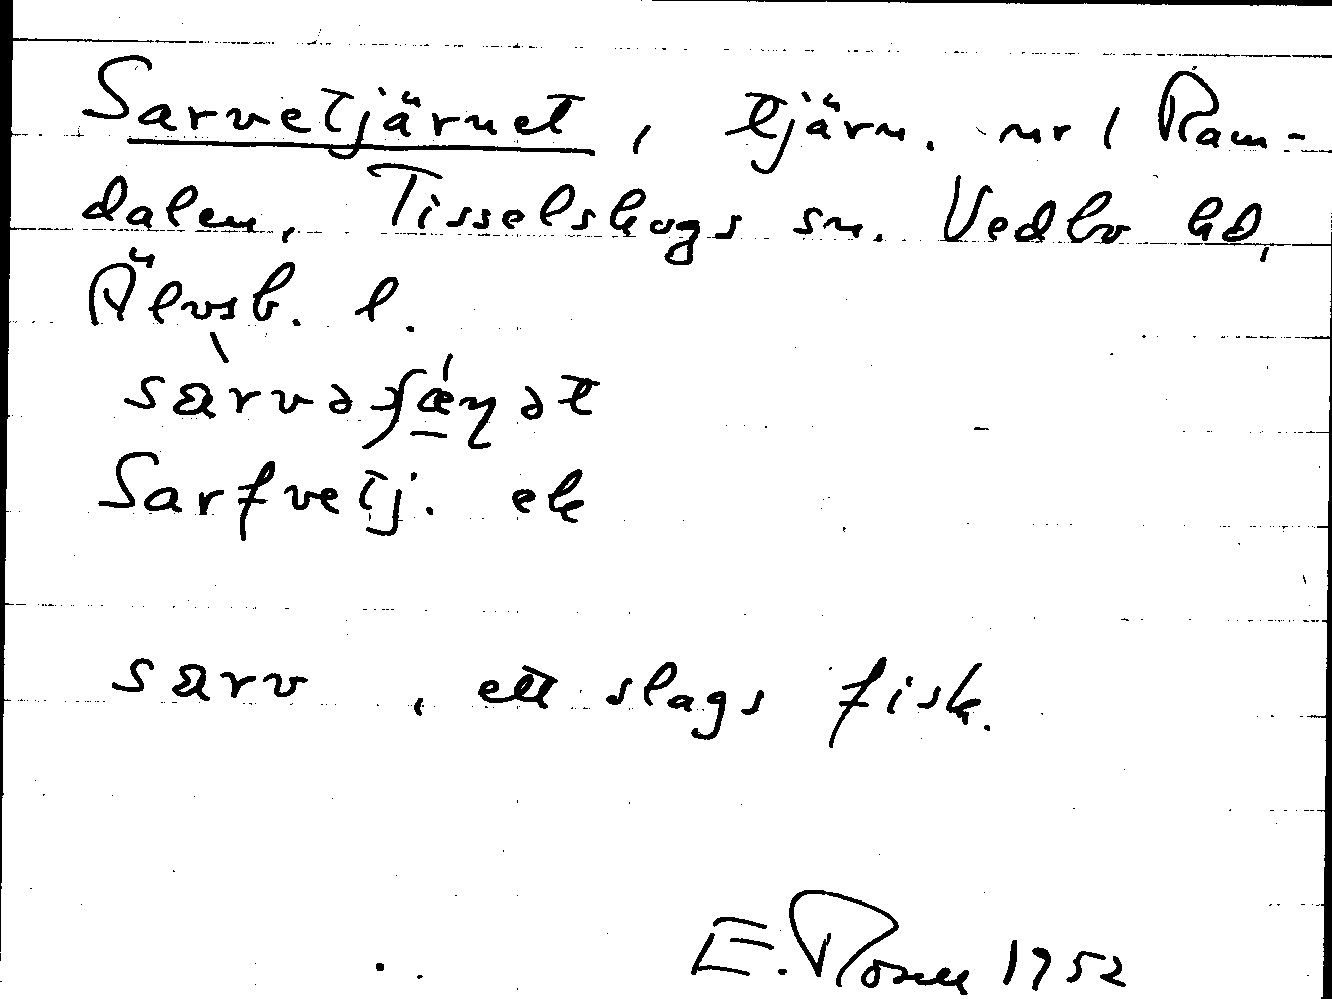 Sarvetjärnet, tjärn. nr 1 Ram-
dalen, Tisselskogs sn. Vedbo hd,
Älvsb. l.
sàrvəʃǽɳət
Sarfvetj. ek
sarv, ett slags fisk.
E. Rosell 1952